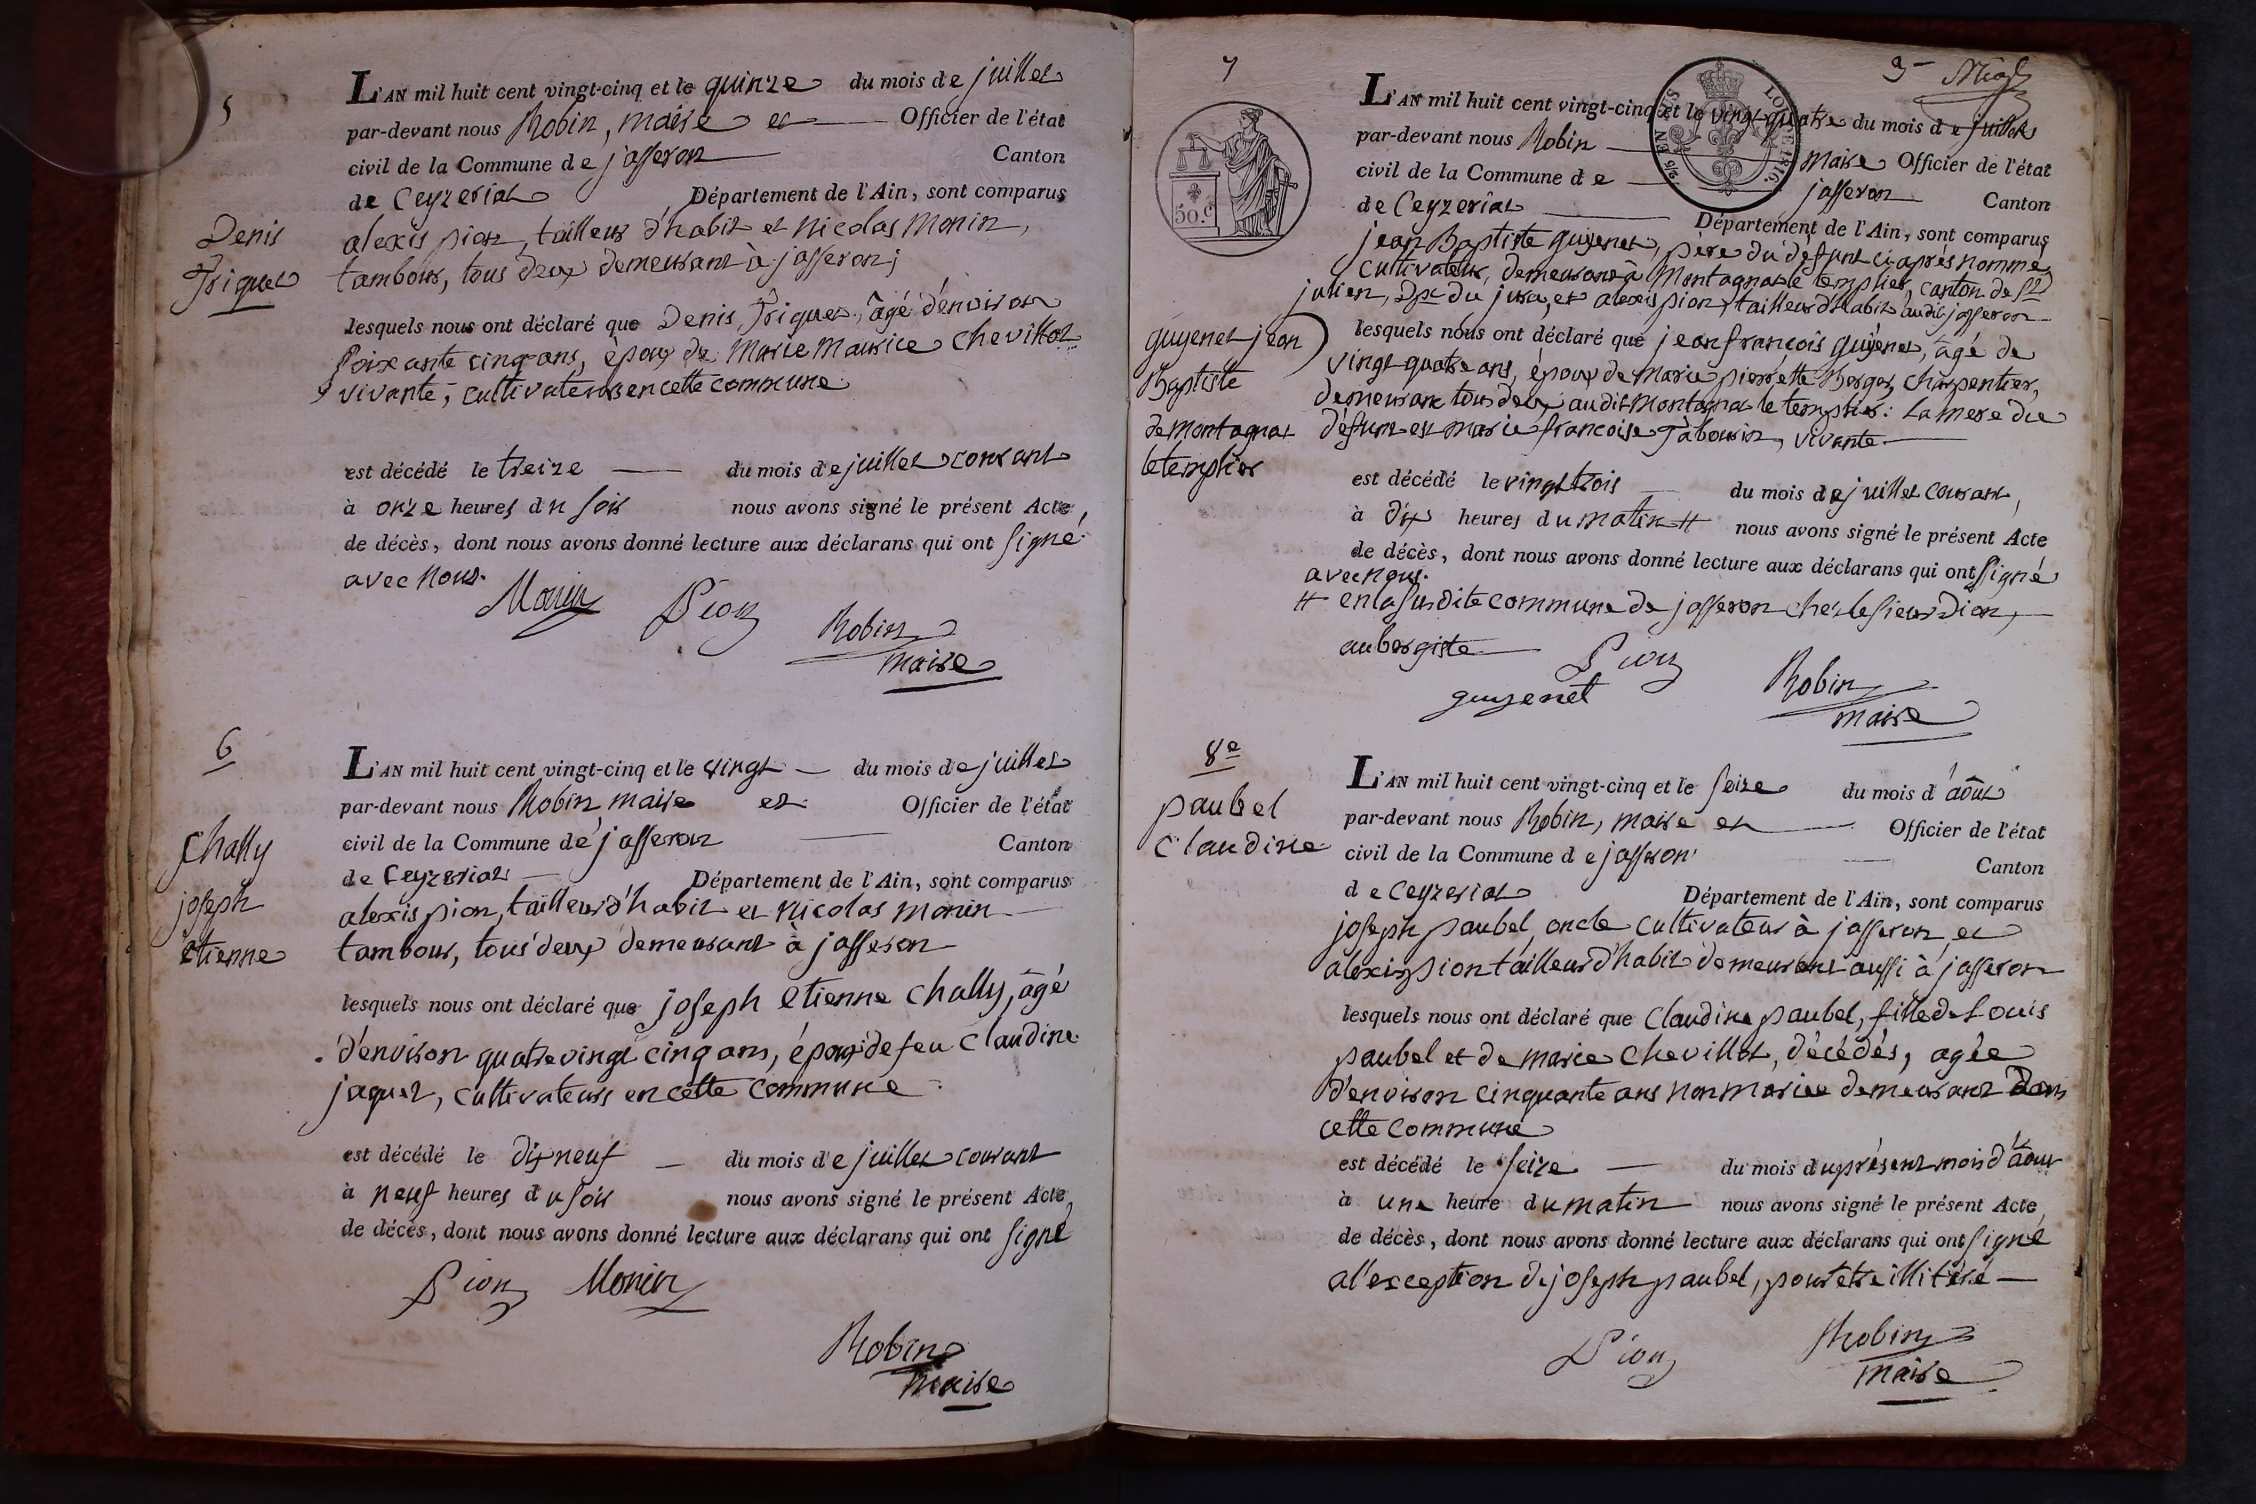 5
L'AN mil huit cent vingt-cinq et le quinze du mois de juillet
par-devant nous Robin, maire et Officier de l'état
civil de la Commune de jasseron Canton
de Ceyzeriat Département de l'Ain, sont comparus
Denis
alexis pion, tailleur d'habit et Nicolas Monin,
tambour, tous deux demeurant à jasseron;
lesquels nous ont déclaré que Denis, âgé d'environ
soixante cinq ans, époux de Marie Maurice Chevillot
vivante, cultivateurs en cette commune
est décédé le treize du mois de juillet courant
à onze heures du soir nous avons signé le présent Acte,
de décès, dont nous avons donné lecture aux déclarans qui ont signé
avec nous.
Monin Pion Robin
maire
6
L'AN mil huit cent vingt-cinq et le vingt du mois de juillet
par-devant nous Robin, maire et Officier de l'état
civil de la Commune de jasseron Canton
de Ceyzeriat Département de l'Ain, sont comparus
Chally
joseph
etienne
alexis pion, tailleur d'habit et Nicolas Monin
tambour, tous deux demeurant à jasseron
lesquels nous ont déclaré que joseph etienne Chally, âgé
d'environ quatre vingt cinq ans, époux de feu Claudine
jaquet, cultivateurs en cette commune
est décédé le dix neuf du mois de juillet courant
à neuf heures du soir nous avons signé le présent Acte,
de décès, dont nous avons donné lecture aux déclarans qui ont signé
Pion Monin
Robin
maire
7
L'AN mil huit cent vingt-cinq et le vingt-quatre du mois de juillet
par-devant nous Robin maire Officier de l'état
civil de la Commune de jasseron Canton
de Ceyzeriat Département de l'Ain, sont comparus
50.c
jean Baptiste guyenet, père du défunt ci après nommé
cultivateur, demeurant à Montagnat le templier, canton de St
julien, dpt du jura, et alexis pion, tailleur d'habit audit jasseron
guyenet jean
Baptiste
de Montagnat
le templier
lesquels nous ont déclaré que jean françois guyenet, âgé de
vingt quatre ans, époux de Marie pierrette Berger, charpentier,
demeurant tous deux audit Montagnat le templier: La mere du
défunt est marie françoise Tabourin, vivante
est décédé le vingt trois du mois de juillet courant,
à dix heures du matin # nous avons signé le présent Acte
de décès, dont nous avons donné lecture aux déclarans qui ont signé
avec nous.
# en la susdite commune de jasseron chez le sieur Dion,
aubergiste
Pion
guyenet Robin
maire
8e
paubel
Claudine
L'AN mil huit cent vingt-cinq et le seize du mois d'août
par-devant nous Robin, maire et Officier de l'état
civil de la Commune de jasseron Canton
de Ceyzeriat Département de l'Ain, sont comparus
joseph paubel, oncle cultivateur à jasseron et
alexis pion tailleur d'habit demeurant aussi à jasseron
lesquels nous ont déclaré que Claudine paubel, fille de Louis
paubel et de marie Chevillot, décédés, agée
d'environ cinquante ans non mariée demeurant dans
cette commune
est décédé le seize du mois du présent mois d'août
à une heure du matin nous avons signé le présent Acte,
de décès, dont nous avons donné lecture aux déclarans qui ont signé
a l'exception de joseph paubel, pour etre illitéré
Pion Robin
maire